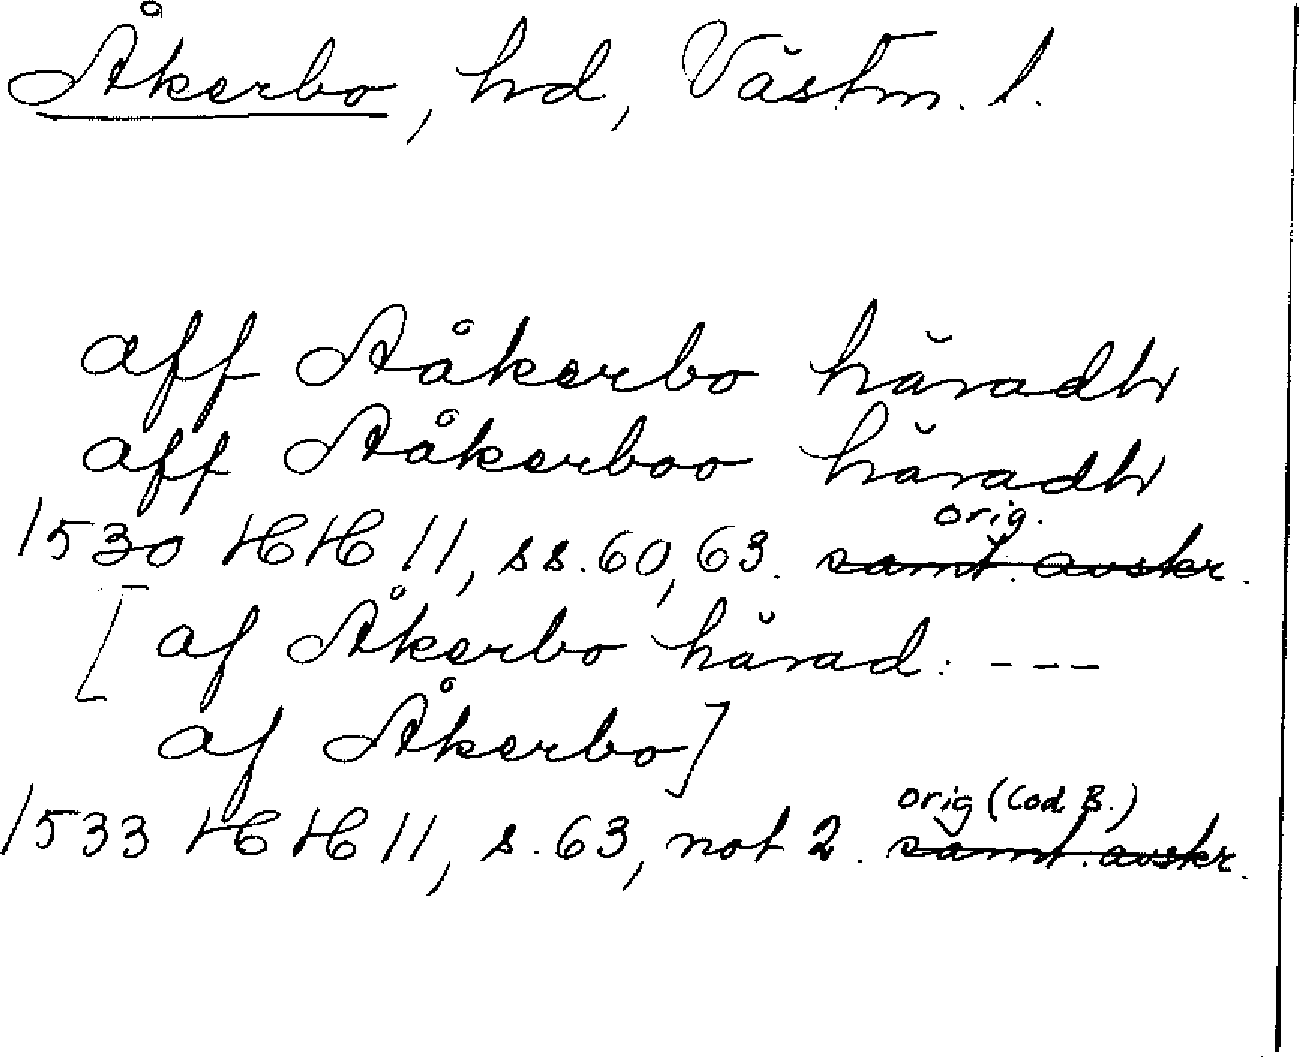 Åkerbo, hd, Västm. l.
aff Aåkerbo häradh
aff Aåkerboo häradh
orig.
1530 HH 11, ss. 60, 63. samt. avskr.
[af Åkerbo härad: ---
af Åkerbo]
orig (Cod B.)
1533 HH 11, s. 63, not 2. samt. avskr.